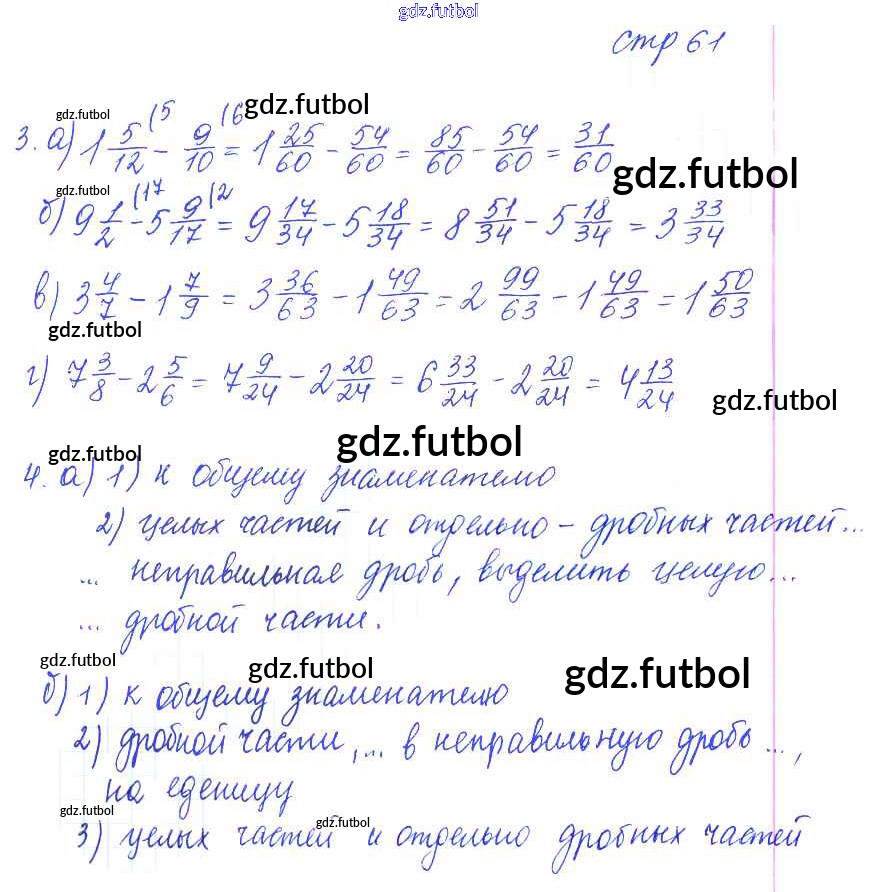 gdz.futbol
стр 61
gdz.futbol gdz.futbol
3. а) 1 5/12 (5 - 9/10 (6 = 1 25/60 - 54/60 = 85/60 - 54/60 = 31/60
gdz.futbol gdz.futbol
б) 9 1/2 (17 - 5 9/17 (2 = 9 17/34 - 5 18/34 = 8 51/34 - 5 18/34 = 3 33/34
в) 3 4/7 - 1 7/9 = 3 36/63 - 1 49/63 = 2 99/63 - 1 49/63 = 1 50/63
gdz.futbol
г) 7 3/8 - 2 5/6 = 7 9/24 - 2 20/24 = 6 33/24 - 2 20/24 = 4 13/24
gdz.futbol
gdz.futbol gdz.futbol
4. а) 1) к общему знаменателю
2) целых частей и отдельно - дробных частей...
... неправильная дробь, выделить целую...
... дробной части.
gdz.futbol gdz.futbol gdz.futbol
б) 1) к общему знаменателю
2) дробной части,... в неправильную дробь ...,
на еденицу
gdz.futbol gdz.futbol
3) целых частей и отдельно дробных частей